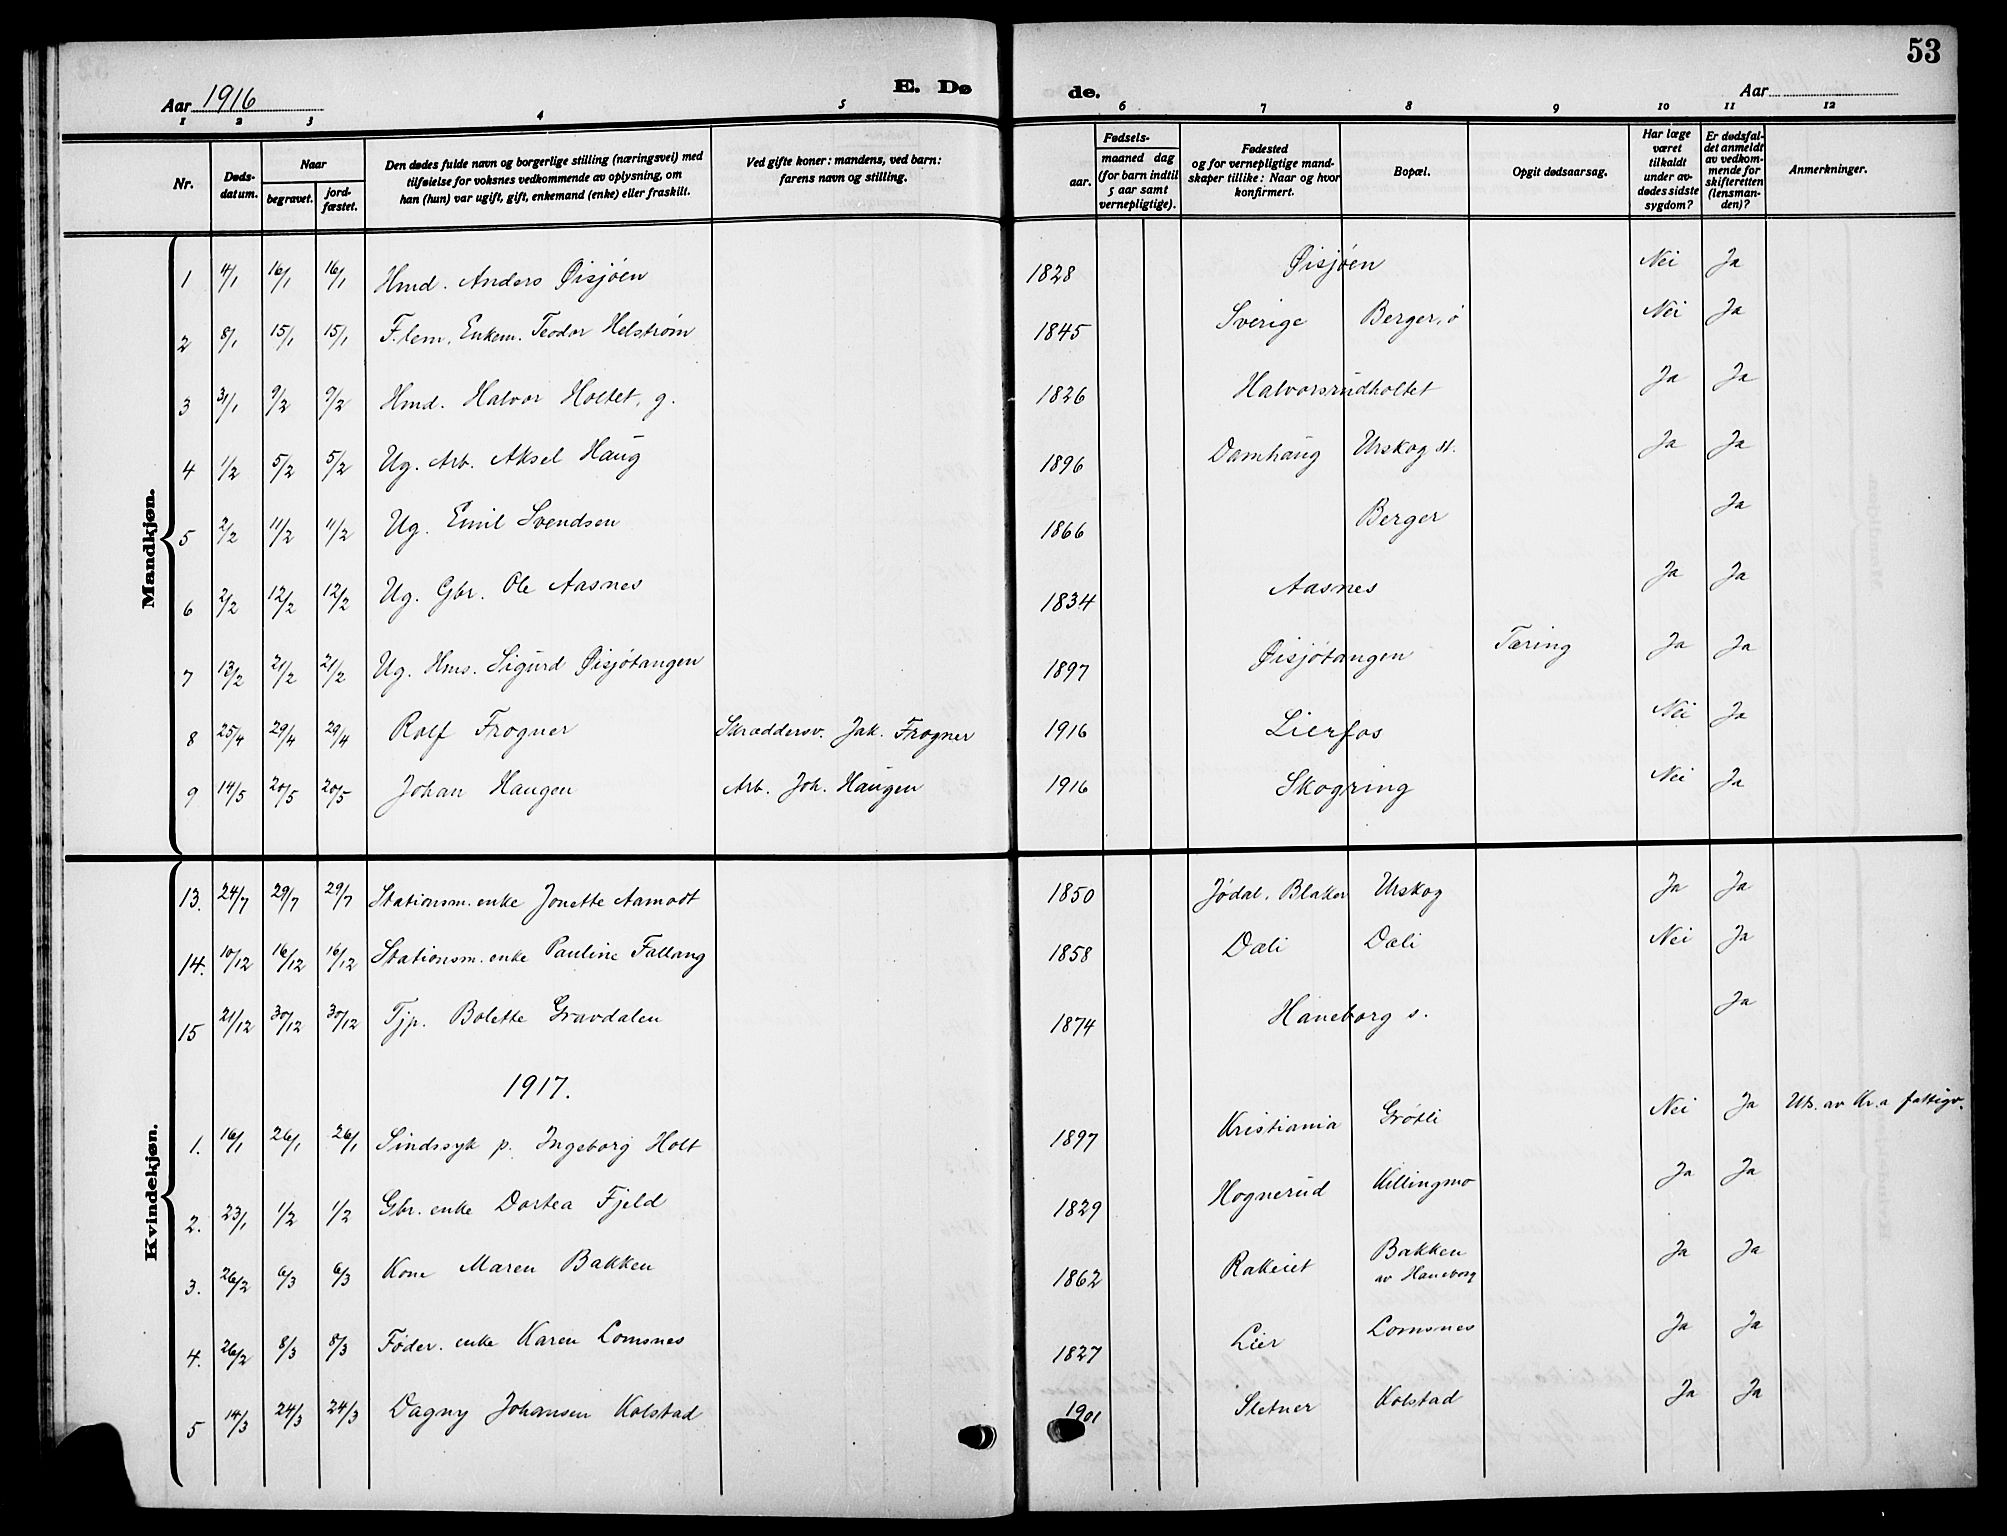 53
Aar 1916
E. Dø
de.
Aar
1 2 3 4 5 6 7 8 9 10 11 12
Nr.
Dødsdatum.
Naar
begravet.
jordfæstet.
Den dødes fulde navn og borgerlige stilling (næringsvei) med
tilføielse for voksnes vedkommende av oplysning, om
han (hun) var ugift, gift, enkemand (enke) eller fraskilt.
Ved gifte koner: mandens, ved barn:
farens navn og stilling.
Fødsels-
aar.
maaned dag
(for barn indtil
5 aar samt
vernepligtige).
Fødested
og for vernepligtige mand-
skaper tillike: Naar og hvor
konfirmert.
Bopæl.
Opgit dødsaarsag.
Har læge
været
tilkaldt
under av-
dødes sidste
sygdom?
Er dødsfal-
det anmeldt
av vedkom-
mende for
skifteretten
(lensman-
den)?
Anmerkninger.
Mandkjøn.
1 4/1 16/1 16/1 Hmd. Anders Øisjöen 1828 Øisjöen Nei Ja
2 8/1 15/1 15/1 F.lem, Enkem. Teodor Helström 1845 Sverige Berger, ö Nei Ja
3 31/1 9/2 9/2 Hmd. Halvor Holtet, g. 1826 Halvorsrudholtet Ja Ja
4 1/2 5/2 5/2 Ug. Arb. Aksel Haug 1896 Damhaug Urskog st. Ja Ja
5 2/2 11/2 11/2 Ug. Emil Svendsen 1866 Berger Ja
6 2/2 12/2 12/2 Ug. Gbr. Ole Aasnes 1834 Aasnes Ja Ja
7 13/2 21/2 21/2 Ug. Hms. Sigurd Øisjötangen 1897 Øisjötangen Tæring Ja Ja
8 25/4 29/4 29/4 Rolf Frogner Skræddersv. Jak. Frogner 1916 Lierfos Nei Ja
9 14/5 20/5 20/5 Johan Haugen Arb. Joh. Haugen 1916 Skogring Nei Ja
Kvindekjøn.
13. 24/7 29/7 29/7 Stationsm. enke Jonette Aamodt 1850 Jödal, Blaker Urskog Ja Ja
14. 10/12 16/12 16/12 Stationsm. enke Pauline Fallang 1858 Dæli Dæli Nei Ja
15 21/12 30/12 30/12 Tjp. Bolette Gravdalen 1874 Haneborg s. Ja
1917.
1. 16/1 26/1 26/1 Sindssyk p. Ingeborg Holt 1897 Kristiania Grötli Nei Ja Uts. av Kr.a fattigv.
2. 23/1 1/2 1/2 Gbr. enke Dortea Fjeld 1829 Hognerud Killingmo Ja Ja
3. 26/2 6/3 6/3 Kone Maren Bakken 1862 Rakeiet Bakken
av Haneborg Ja Ja
4. 26/2 8/3 8/3 Föder. enke Karen Lomsnes 1827 Lier Lomsnes Ja Ja
5 14/3 24/3 24/3 Dagny Johansen Kolstad 1901 Sletner Kolstad Ja Ja